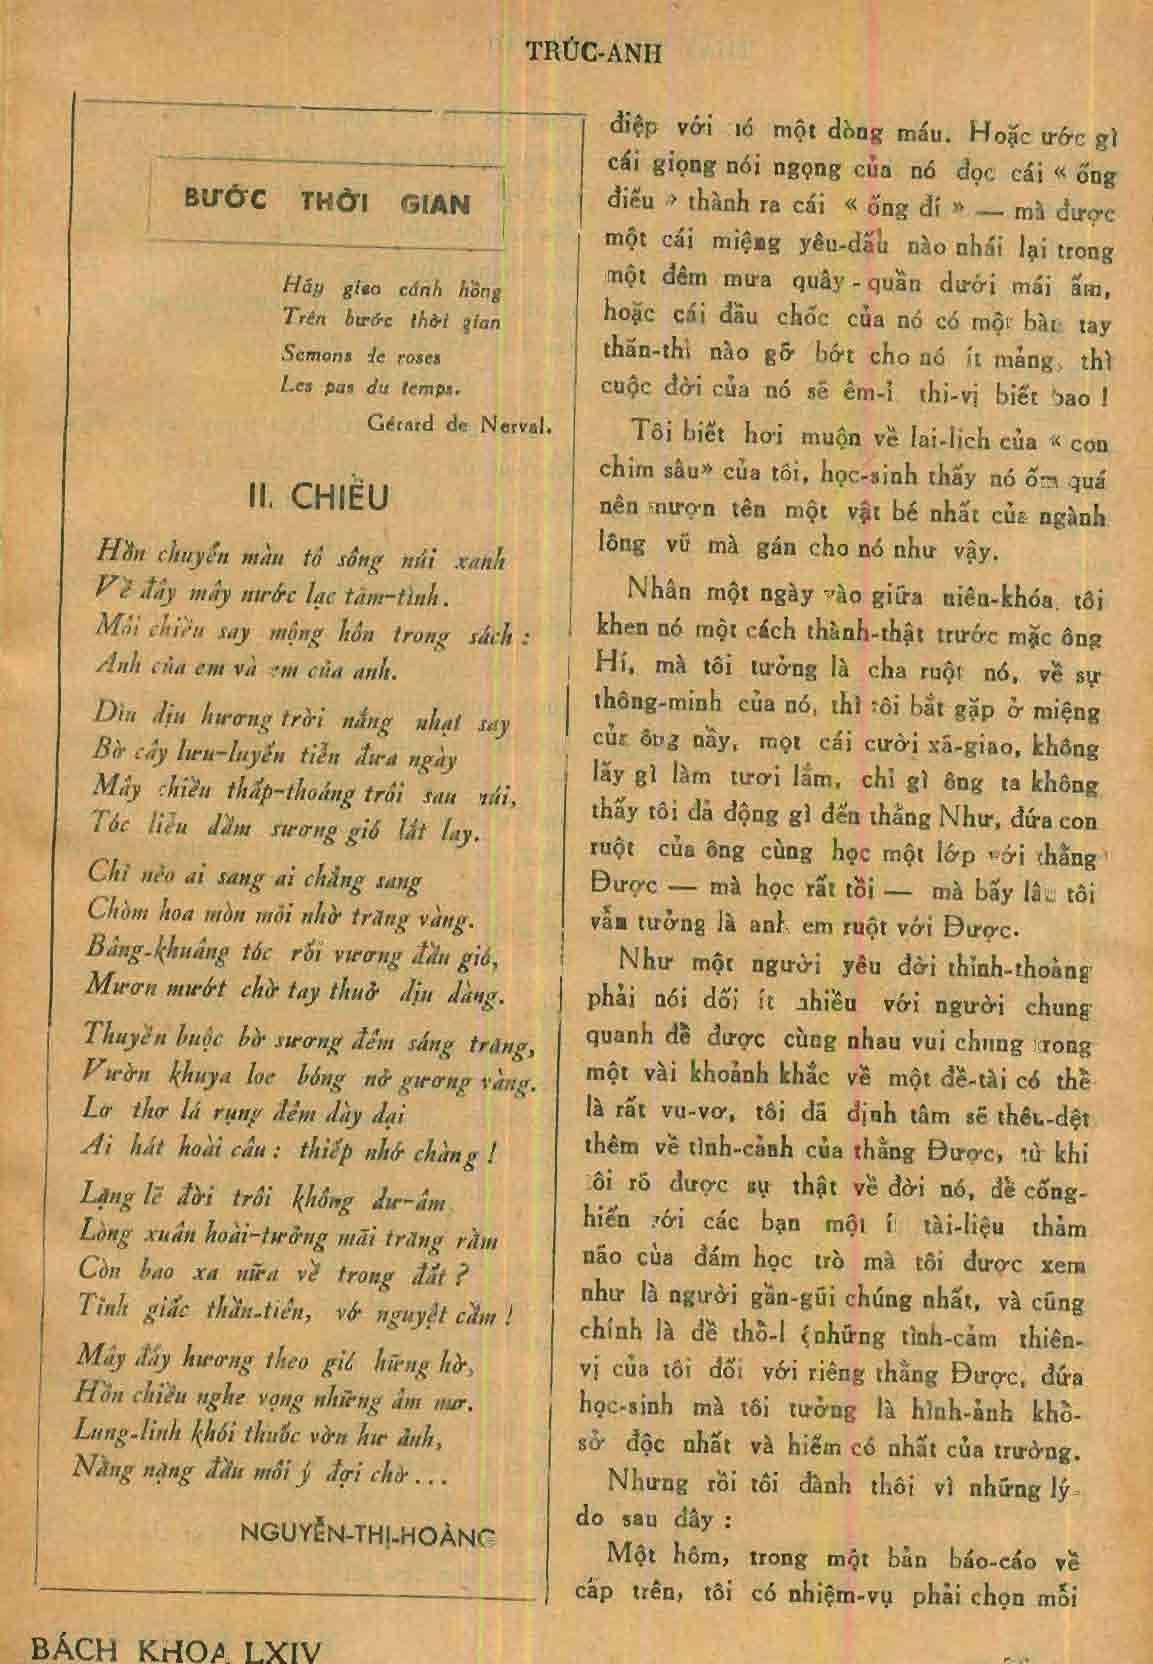 TRÚC-ANH
BƯỚC THỜI GIAN
Hãy gieo cánh hồng
Trên bước thời gian
Semons de roses
Les pas du temps.
Gérard de Nerval.
II. CHIỀU
Hồn chuyển màu tô sông núi xanh
Về đây mây nước lạc tâm-tình.
Môi chiều say mộng hôn trong sách :
Anh của em và em của anh.
Dìu dịu hương trời nắng nhạt say
Bờ cây lưu-luyến tiễn đưa ngày
Mây chiều thấp-thoáng trôi sau núi,
Tóc liễu đầm sương gió lắt lay.
Chỉ nẻo ai sang ai chẳng sang
Chòm hoa mòn mỏi nhờ trăng vàng.
Bâng-khuâng tóc rối vương đầu gió,
Mươn mướt chờ tay thuở dịu dàng.
Thuyền buộc bờ sương đêm sáng trăng,
Vườn khuya loe bóng nở gương vàng.
Lơ thơ lá rụng đêm dày dại
Ai hát hoài câu : thiếp nhớ chàng !
Lặng lẽ đời trôi không dư-âm
Lòng xuân hoài-tưởng mãi trăng rằm
Còn bao xa nữa về trong đất ?
Tỉnh giấc thần-tiên, vỡ nguyệt cầm !
Mây đẩy hương theo gió hững hờ,
Hồn chiều nghe vọng những âm mơ.
Lung-linh khói thuốc vờn hư ảnh,
Nằng nặng đầu môi ý đợi chờ . . .
NGUYỄN-THỊ-HOÀNG
điệp với nó một dòng máu. Hoặc ước gì
cái giọng nói ngọng của nó đọc cái « ống
điếu » thành ra cái « ống đí » — mà được
một cái miệng yêu-dấu nào nhái lại trong
một đêm mưa quây - quần dưới mái ấm,
hoặc cái đầu chốc của nó có một bàn tay
thần-thì nào gỡ bớt cho nó ít mảng, thì
cuộc đời của nó sẽ êm-ỉ thi-vị biết bao !
Tôi biết hơi muộn về lai-lịch của « con
chim sâu» của tôi, học-sinh thấy nó ốm quá
nên mượn tên một vật bé nhất của ngành
lông vũ mà gán cho nó như vậy.
Nhân một ngày vào giữa niên-khóa, tôi
khen nó một cách thành-thật trước mặc ông
Hí, mà tôi tưởng là cha ruột nó, về sự
thông-minh của nó, thì tôi bắt gặp ở miệng
của ông nầy, một cái cười xã-giao, không
lấy gì làm tươi lắm, chỉ gì ông ta không
thấy tôi đả động gì đến thằng Như, đứa con
ruột của ông cùng học một lớp với thằng
Được — mà học rất tồi — mà bấy lâu tôi
vẫn tưởng là anh em ruột với Được.
Như một người yêu đời thỉnh-thoảng
phải nói dối ít nhiều với người chung
quanh để được cùng nhau vui chung trong
một vài khoảnh khắc về một đề-tài có thể
là rất vu-vơ, tôi đã định tâm sẽ thêu-dệt
thêm về tình-cảnh của thằng Được, từ khi
tôi rõ được sự thật về đời nó, để cống-
hiến với các bạn một í tài-liệu thảm
não của đám học trò mà tôi được xem
như là người gần-gũi chúng nhất, và cũng
chính là để thồ-l những tình-cảm thiên-
vị của tôi đối với riêng thằng Được, đứa
học-sinh mà tôi tưởng là hình-ảnh khổ-
sở độc nhất và hiếm có nhất của trường.
Nhưng rồi tôi đành thôi vì những lý-
do sau đây :
Một hôm, trong một bản báo-cáo về
cấp trên, tôi có nhiệm-vụ phải chọn mỗi
BÁCH KHOA LXIV